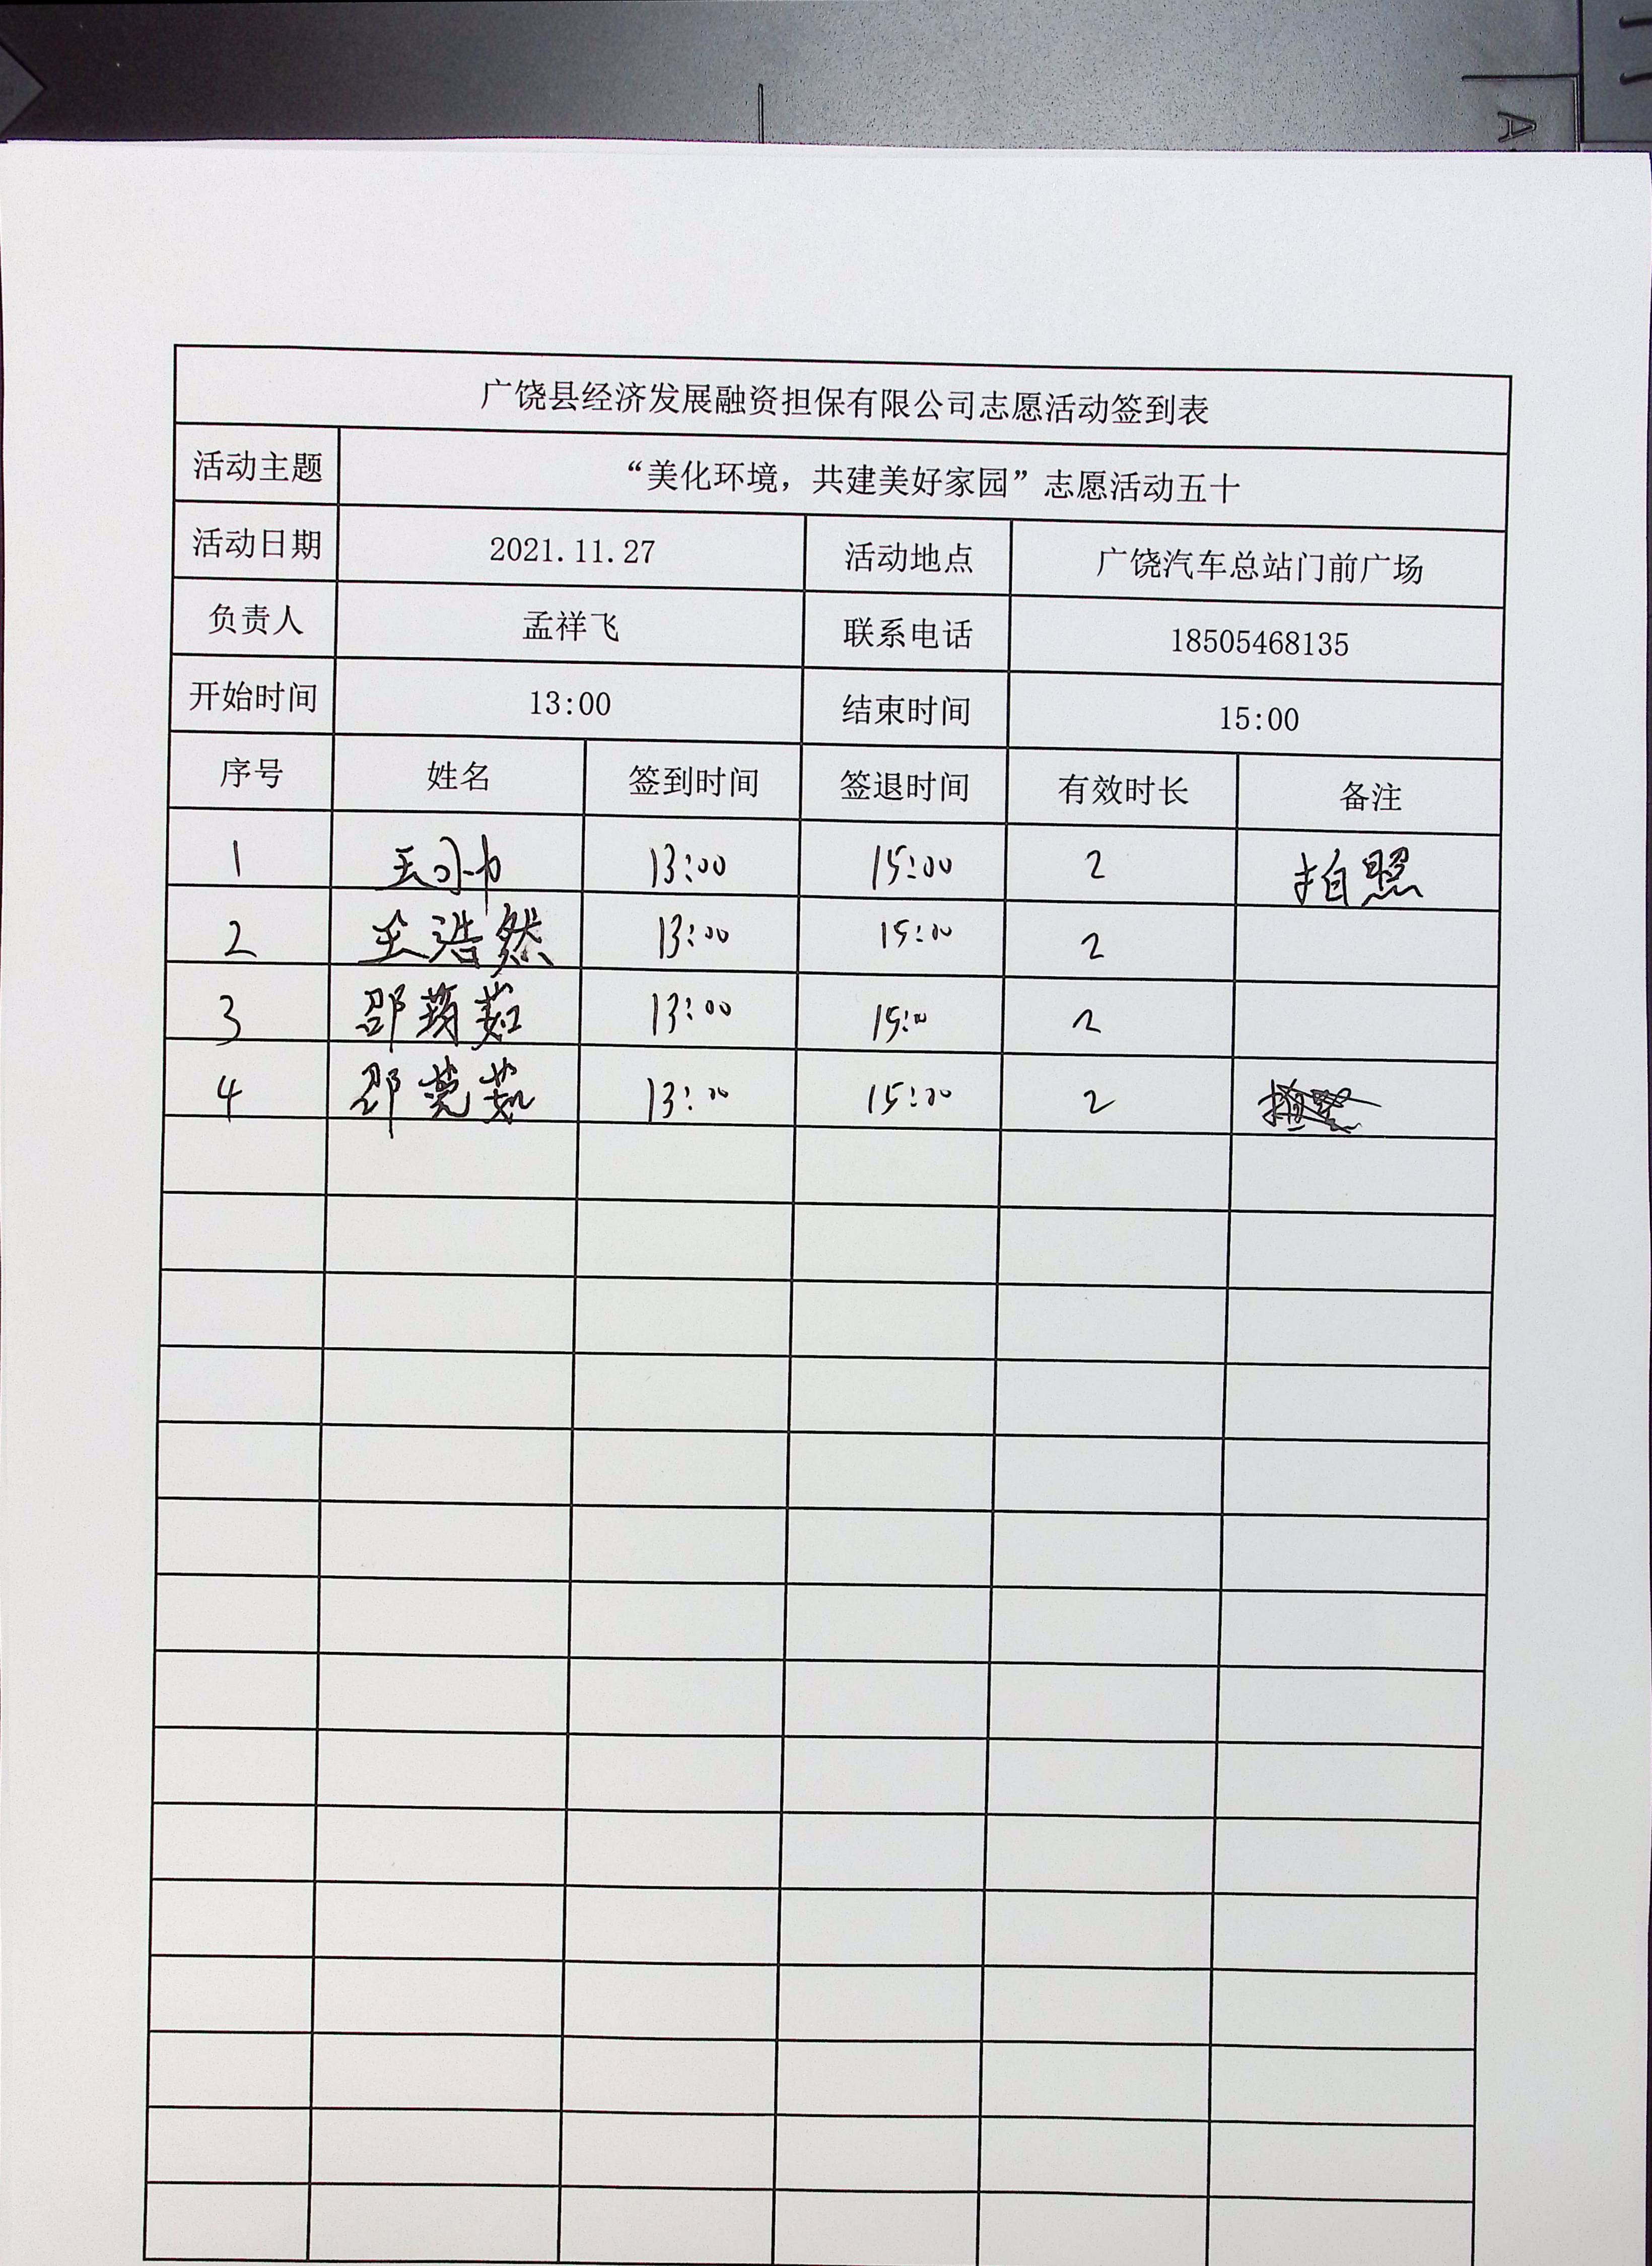 广饶县经济发展融资担保有限公司志愿活动签到表
活动主题 “美化环境，共建美好家园”志愿活动五十
活动日期 2021.11.27 活动地点 广饶汽车总站门前广场
负责人 孟祥飞 联系电话 18505468135
开始时间 13:00 结束时间 15:00
序号 姓名 签到时间 签退时间 有效时长 备注
1 王 13:00 15:00 2 拍照
2 王浩然 13:00 15:00 2
3 邵 茹 13:00 15:00 2
4 邵莞茹 13:00 15:00 2
A